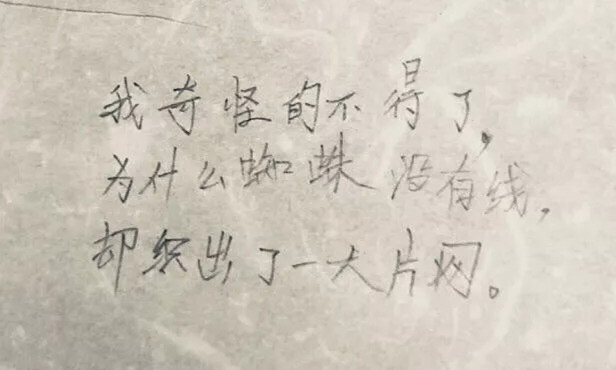 我奇怪的不得了,
为什么蜘蛛没有线,
却织出了一大片网。